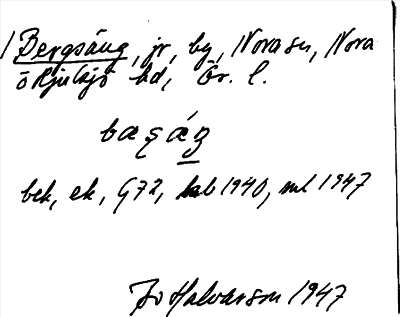 Bergsäng, jr, by, Nora sn, Nora
o Hjulsjö hd, Ör. l.
bek, ek, G72, hab 1940, ml 1947
Jo Halvarson 1947